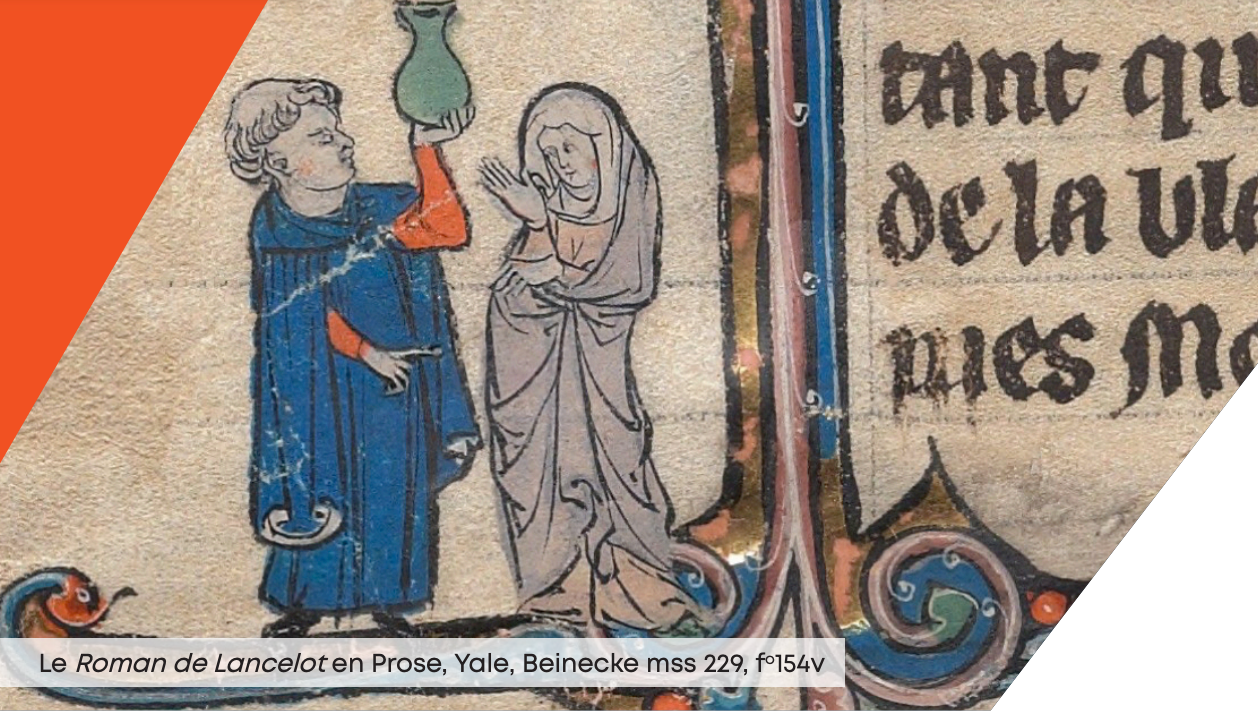 tant qu
de la
Le Roman de Lancelot en Prose, Yale, Beinecke mss 229, f°154v